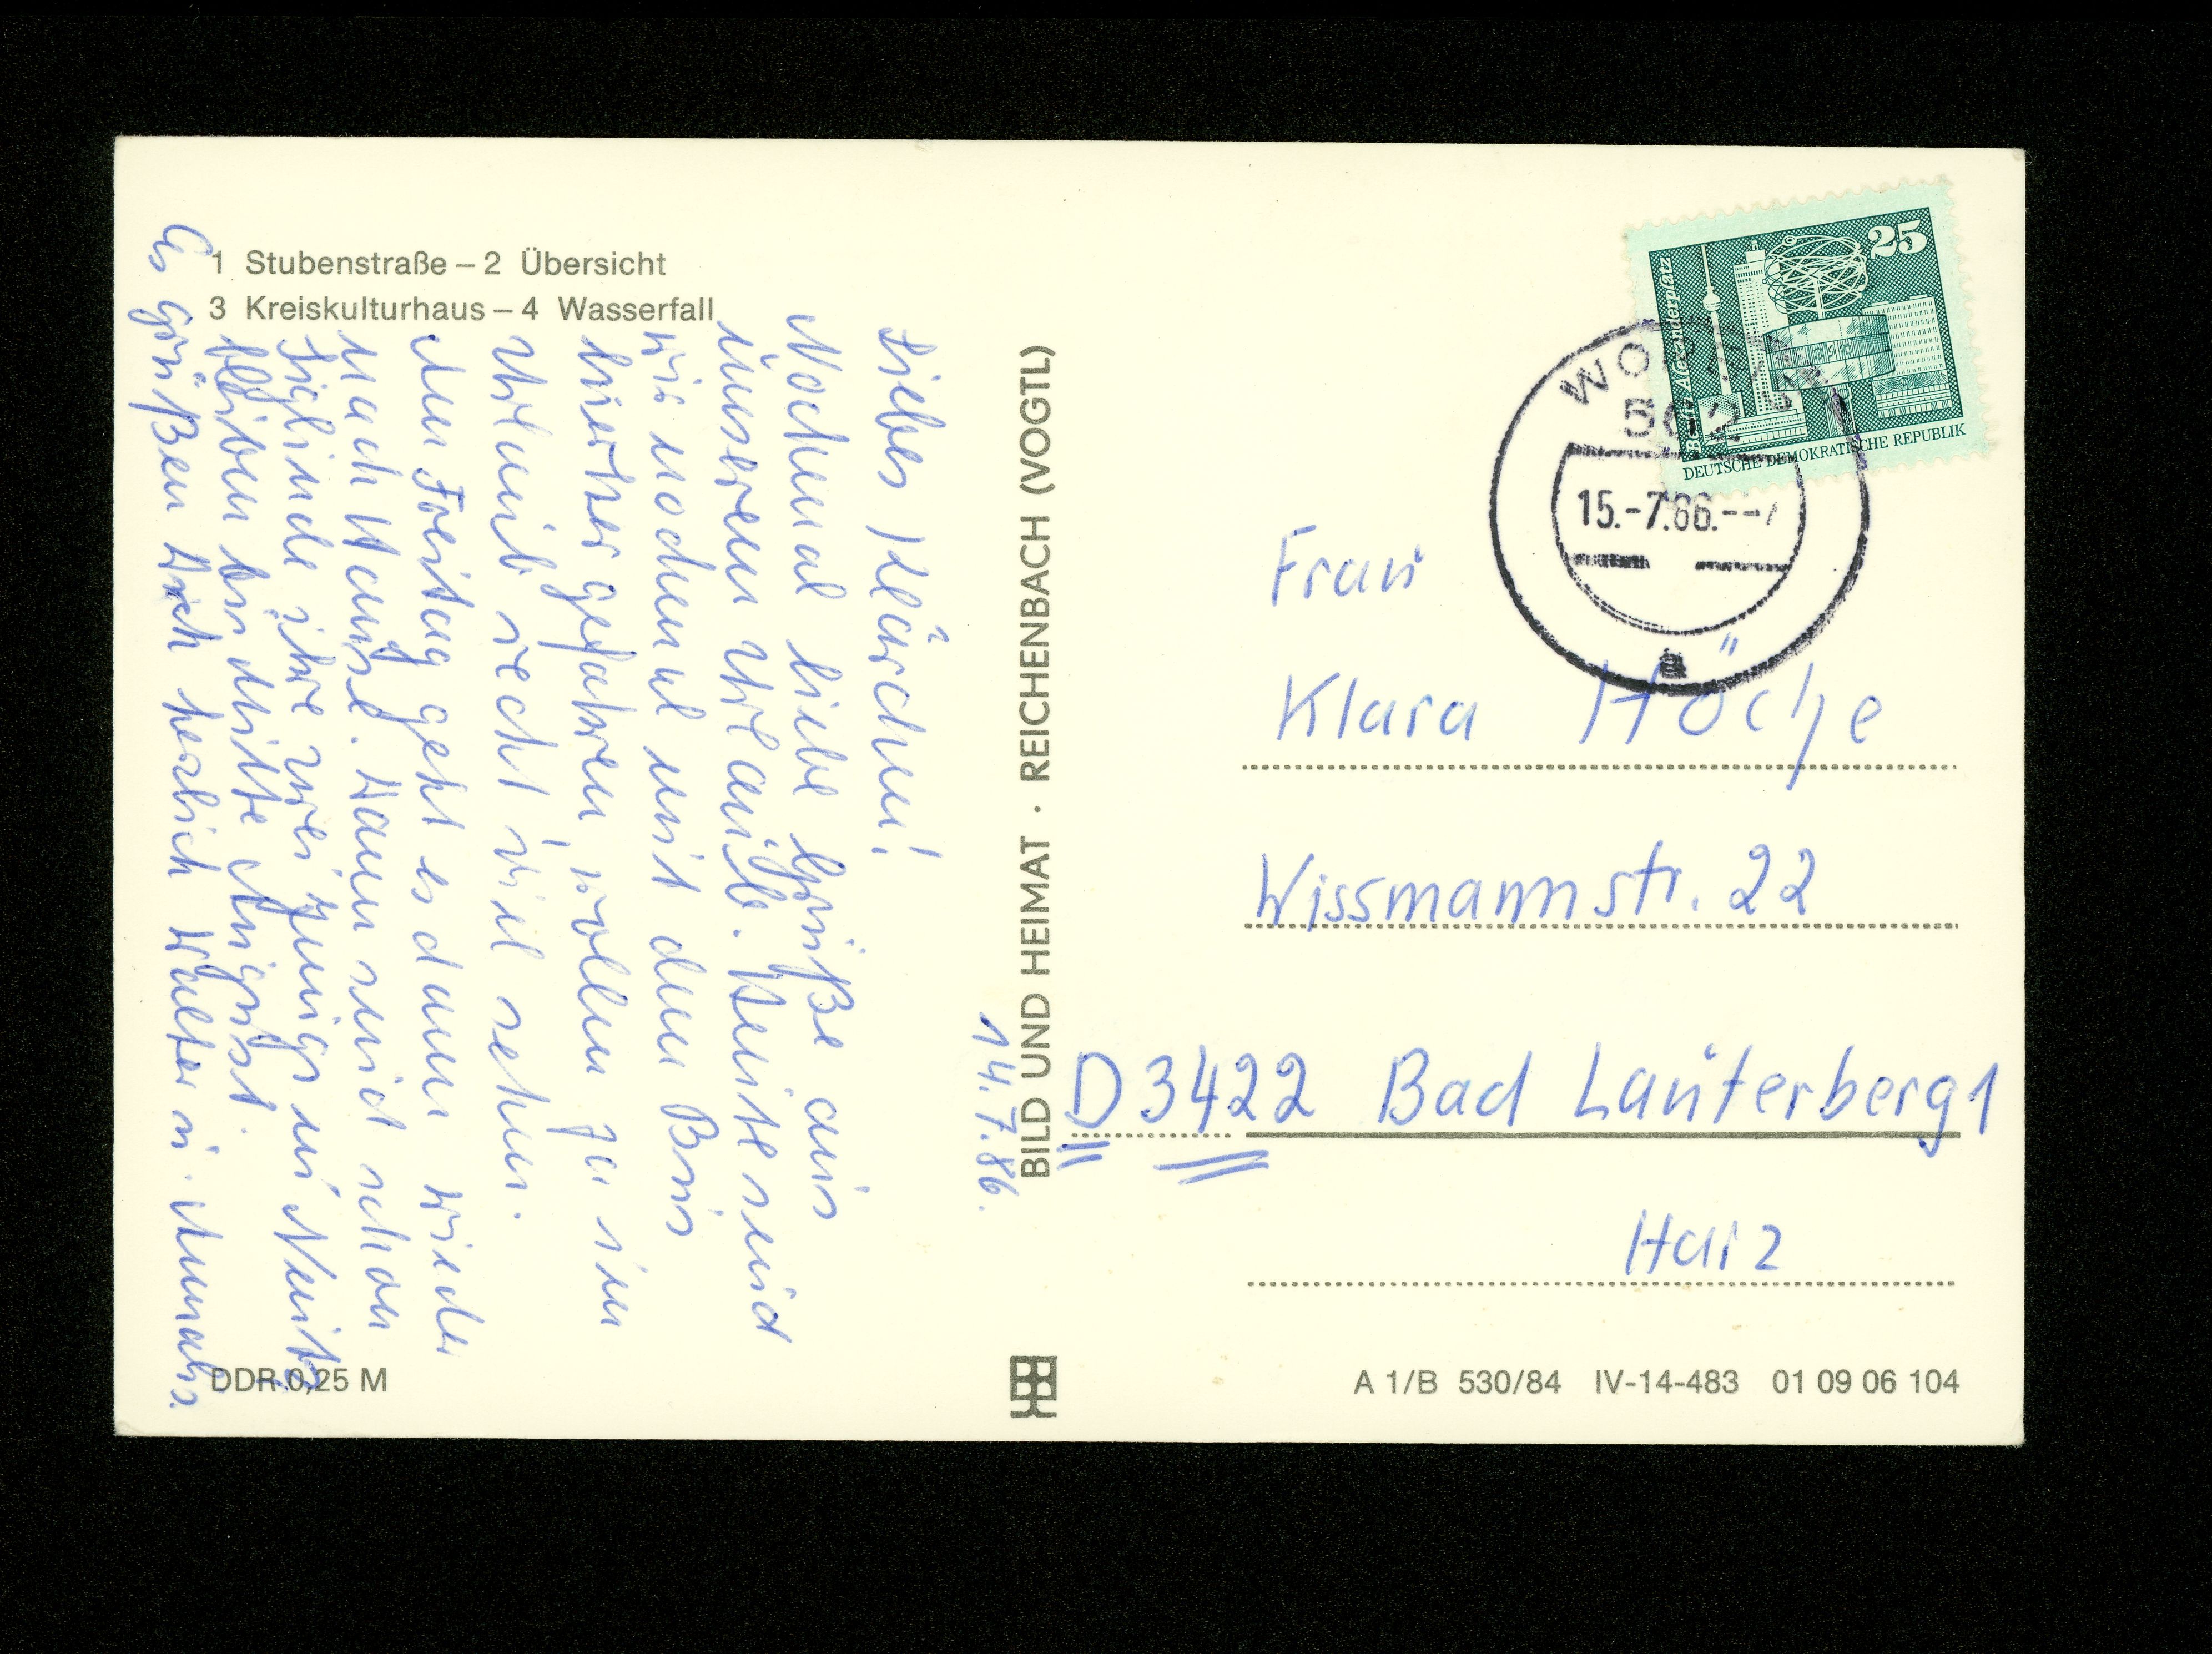 1 Stubenstraße – 2 Übersicht
3 Kreiskulturhaus – 4 Wasserfall
14.7.86.
Liebes Klärchen!
Nochmal liebe Grüße aus
unserem Urlaub. Heute sind
wir nochmal mit dem Bus
hierher gefahren, wollen ja im
Urlaub recht viel sehen.
Am Freitag geht es dann wieder
nach Hause. Dann sind schon
Siglinde ihre zwei Jungs in
bleiben bis Mitte August.
Es grüßen Dich herzlich Walter u. Annelis.
DDR 0,25 M
BILD UND HEIMAT · REICHENBACH (VOGTL)
25
Berlin, Alexanderplatz
DEUTSCHE DEMOKRATISCHE REPUBLIK
15.-7.86.--7
a
Frau
Klara Höche
Wissmannstr. 22
D 3422 Bad Lauterberg 1
Harz
A 1/B 530/84 IV-14-483 01 09 06 104